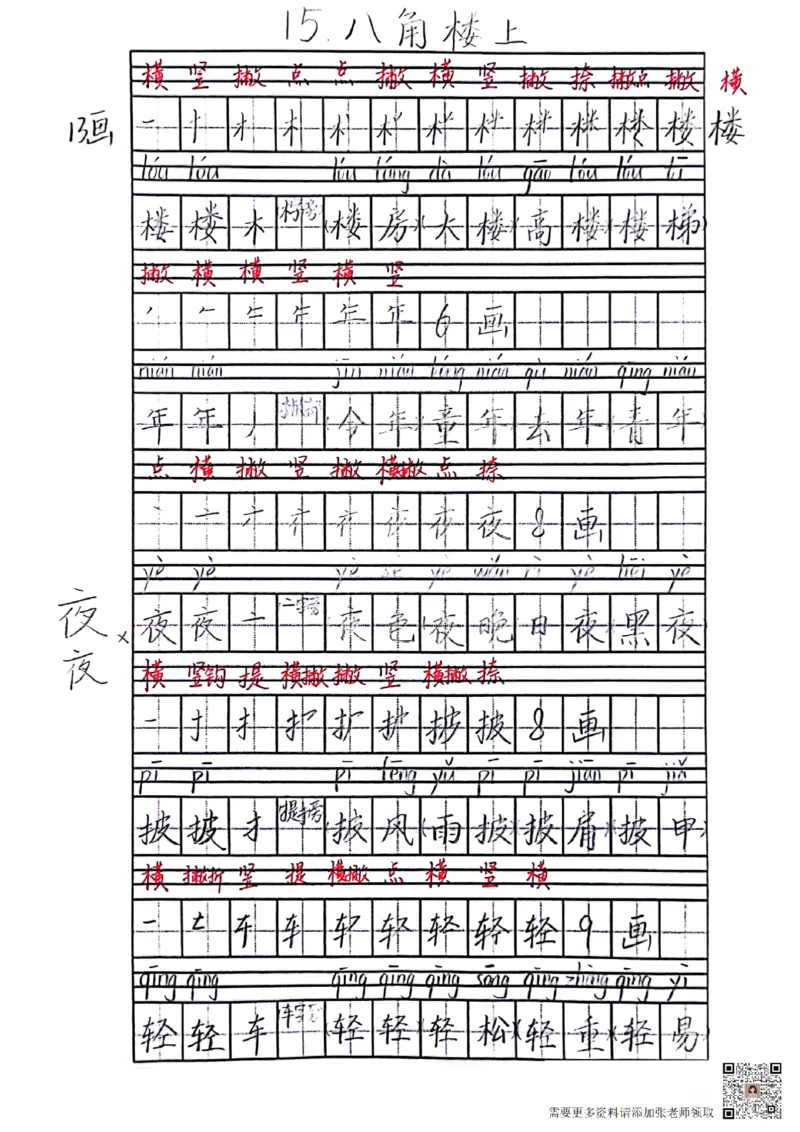 15.八角楼上
横 竖 撇 点 点 撇 横 竖 撇 捺 撇点 撇 横
13画 楼
lóu lóu lóu fáng dà lóu gāo lóu lóu tī
楼 楼 木 木字旁 (楼 房)(大 楼)(高 楼)(楼 梯)
撇 横 横 竖 横 竖
年 6 画
nián nián jīn nián tóng nián qù nián qīng nián
年 年 丿 (今 年)(童 年)(去 年)(青 年)
点 横 撇 竖 撇 横撇 点 捺
夜 8 画
yè yè yè sè yè wǎn rì yè hēi yè
夜 × 夜 夜 亠 (夜 色)(夜 晚)(日 夜)(黑 夜)
夜
横 竖钩 提 横撇 撇 竖 横撇 捺
一 扌 披 披 8 画
pī pī pī fēng yǔ pī pī jiān pī jiǎ
披 披 扌 提手旁 (披 风)(雨 披)(披 肩)(披 甲)
横 撇折 竖 提 横撇 点 横 竖 横
一 车 轻 轻 轻 9 画
qīng qīng qīng qīng qīng sōng qīng zhòng qīng yì
轻 轻 车 车字旁 (轻 轻)(轻 松)(轻 重)(轻 易)
需要更多资料请添加张老师领取